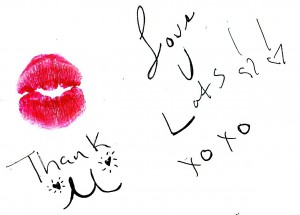 Thank
U
Love
U
Lots !!
xo xo